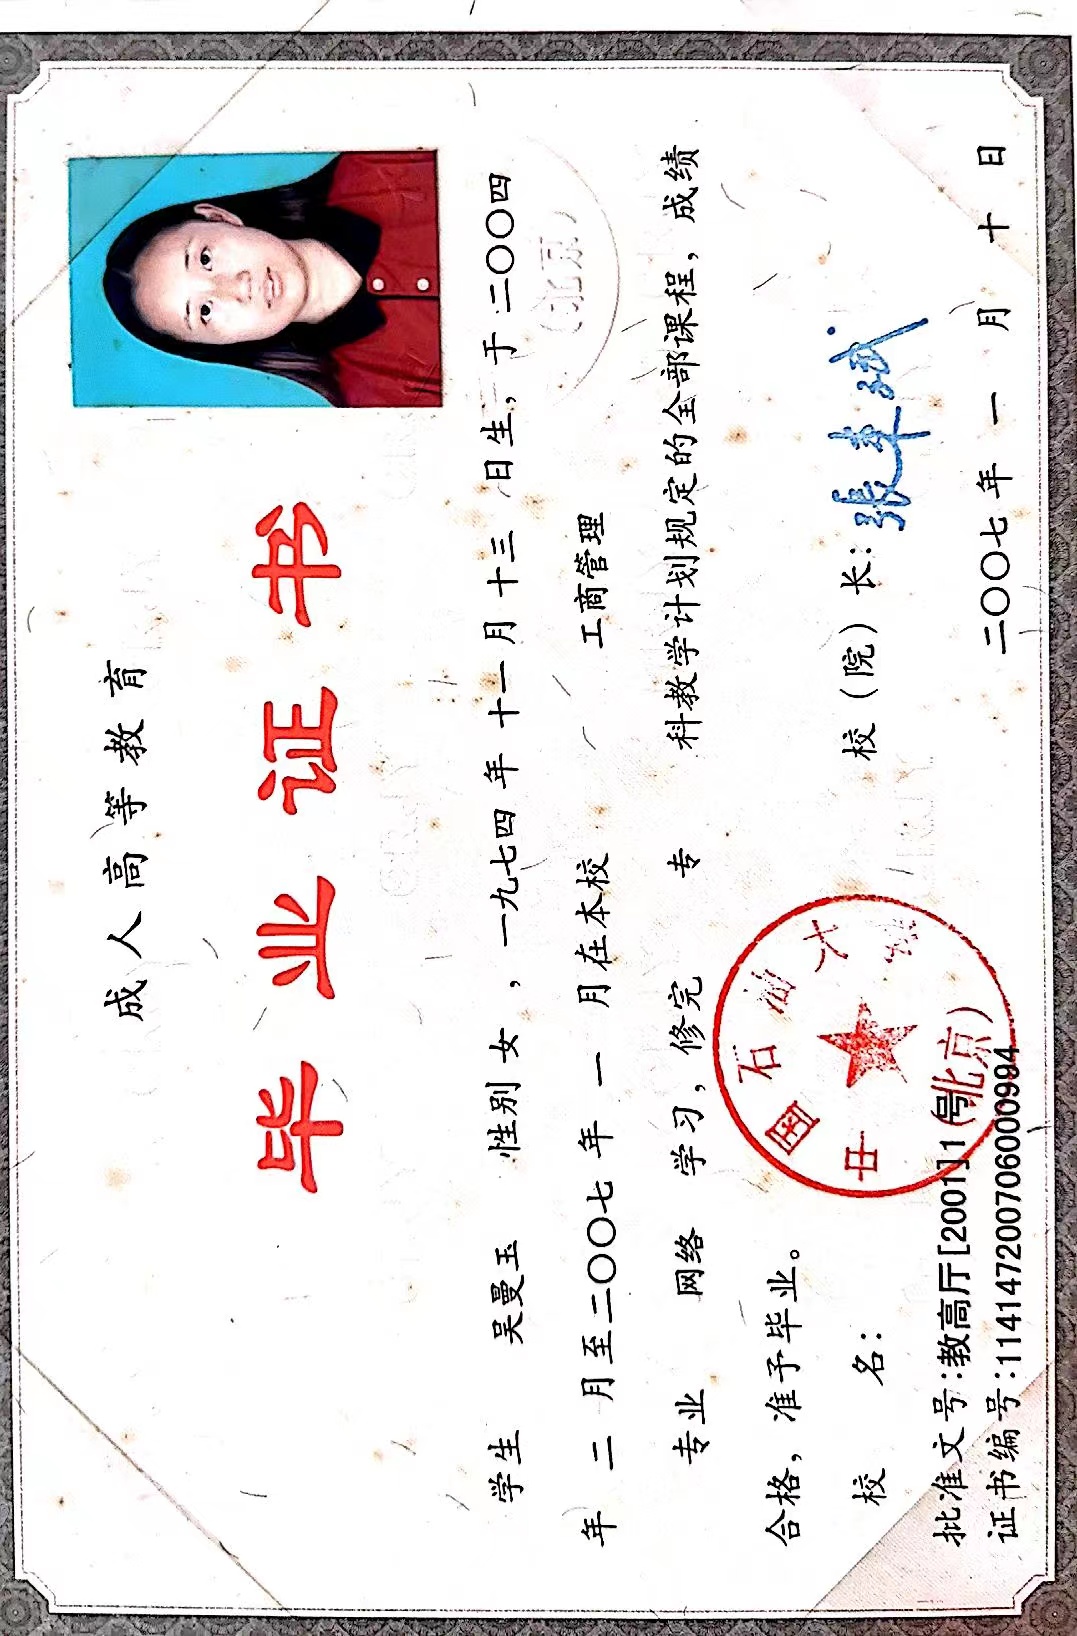 成人高等教育
毕业证书
学生 吴曼玉 性别 女，一九七四年十一月十三日生，于二〇〇四
年 二 月至二〇〇七年 一 月在本校 工商管理
专业 网络 学习，修完 专 科教学计划规定的全部课程，成绩
合格，准予毕业。
校 名： 校（院）长：
中国石油大
（北京）
（北京）
批准文号:教高厅[2001]1号
证书编号:114147200706000994
二〇〇七年 一 月 十 日